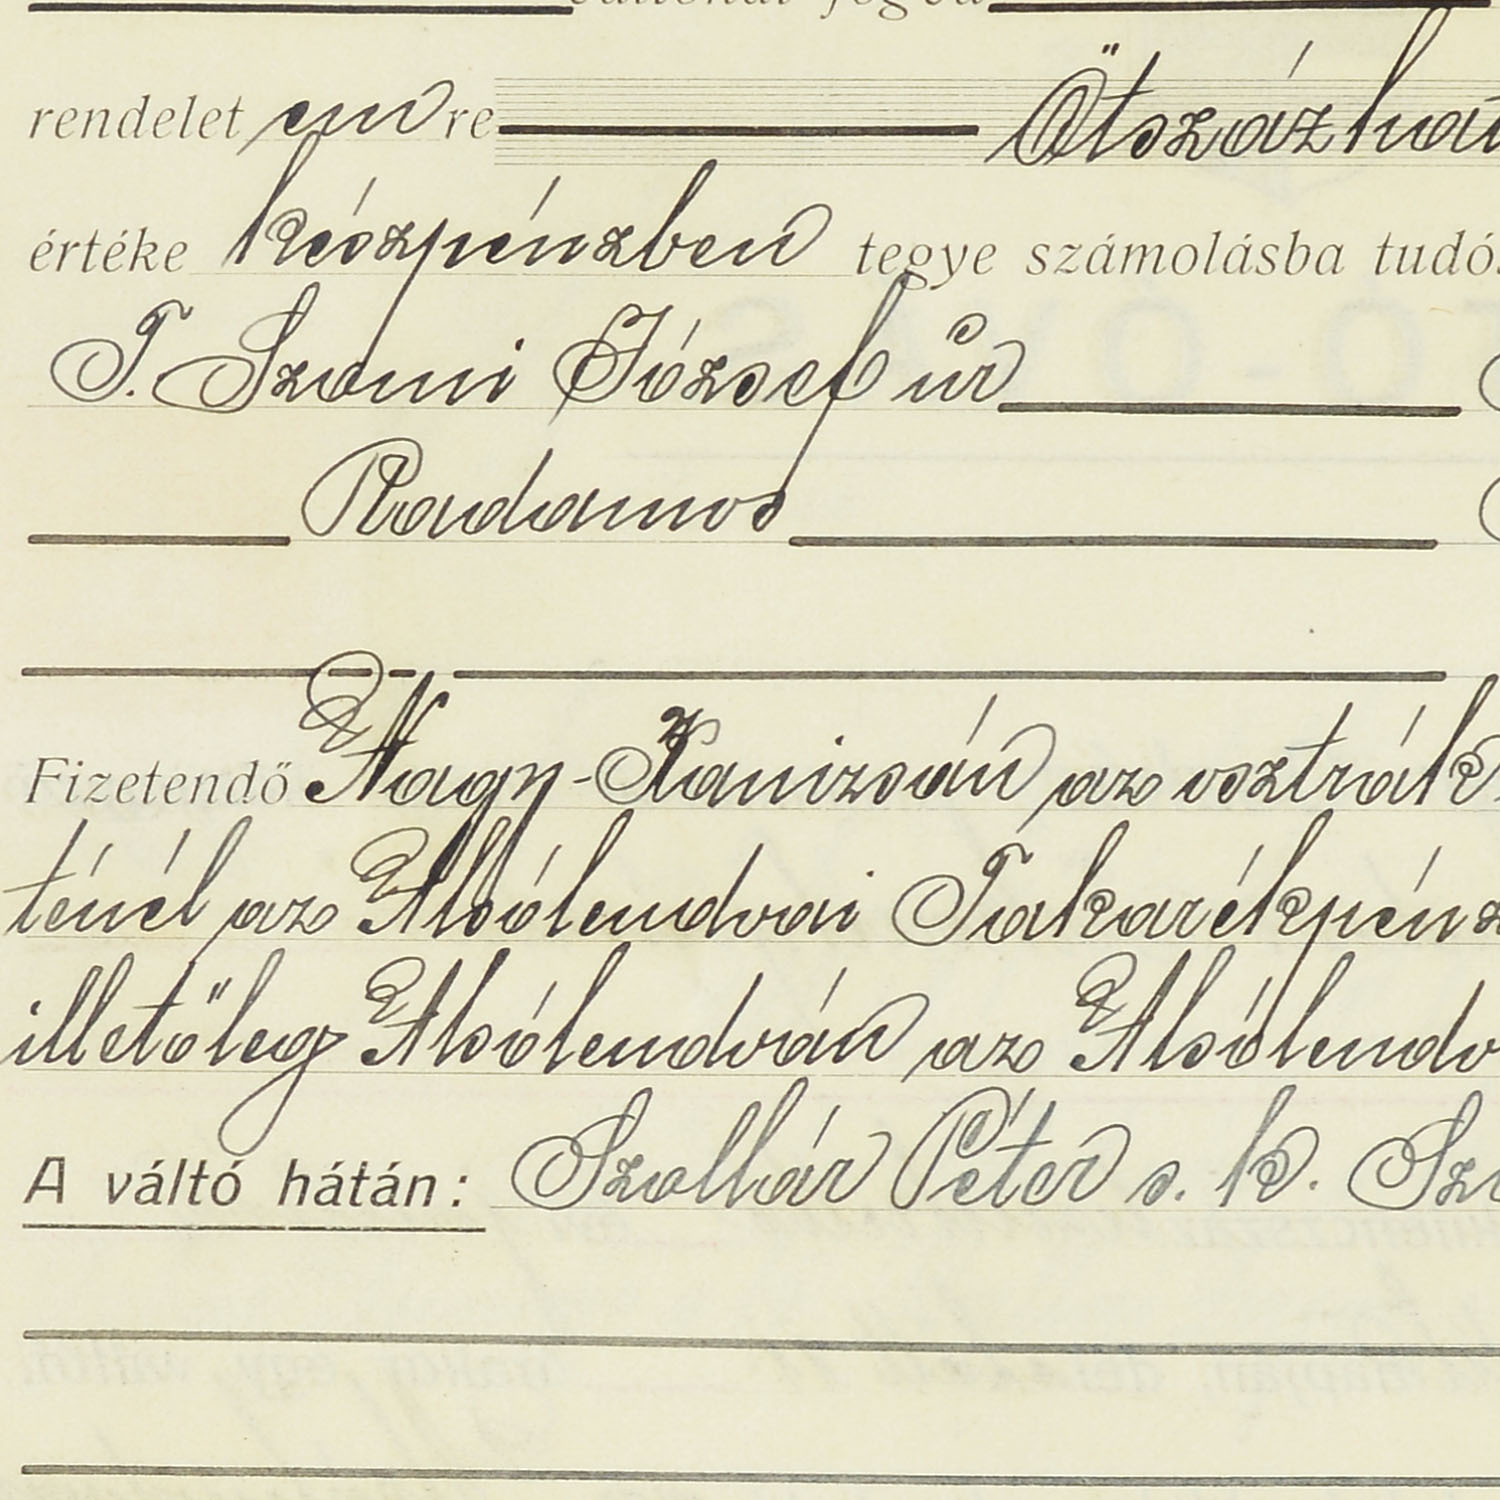 rendelet em re Ötszázhat
értéke készpénzben tegye számolásba tudós
T. Szomi József úr
Radamos
Fizetendő Nagy-Kanizsán az osztrák
ténél az Alsólendvai Takarékpénz
illetőleg Alsólendván az Alsólendv
A váltó hátán: Szolhár Péter s. k. Sz